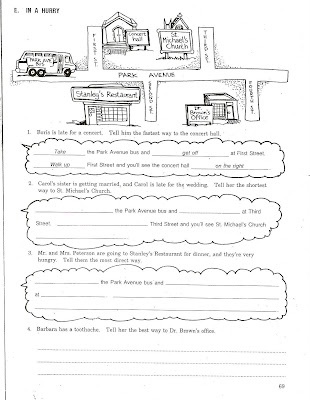 E. IN A HURRY
FIRST ST.
Concert
hall
St.
Michael's
Church
PARK AVE.
BUS
PARK AVENUE
Stanley's Restaurant
Dr.
Brown's
Office
1. Boris is late for a concert. Tell him the fastest way to the concert hall.
Take the Park Avenue bus and get off at First Street.
Walk up First Street and you'll see the concert hall on the right.
2. Carol's sister is getting married, and Carol is late for the wedding. Tell her the shortest
way to St. Michael's Church.
the Park Avenue bus and at Third
Street. Third Street and you'll see St. Michael's Church
3. Mr. and Mrs. Peterson are going to Stanley's Restaurant for dinner, and they're very
hungry. Tell them the most direct way.
the Park Avenue bus and
at
4. Barbara has a toothache. Tell her the best way to Dr. Brown's office.
69